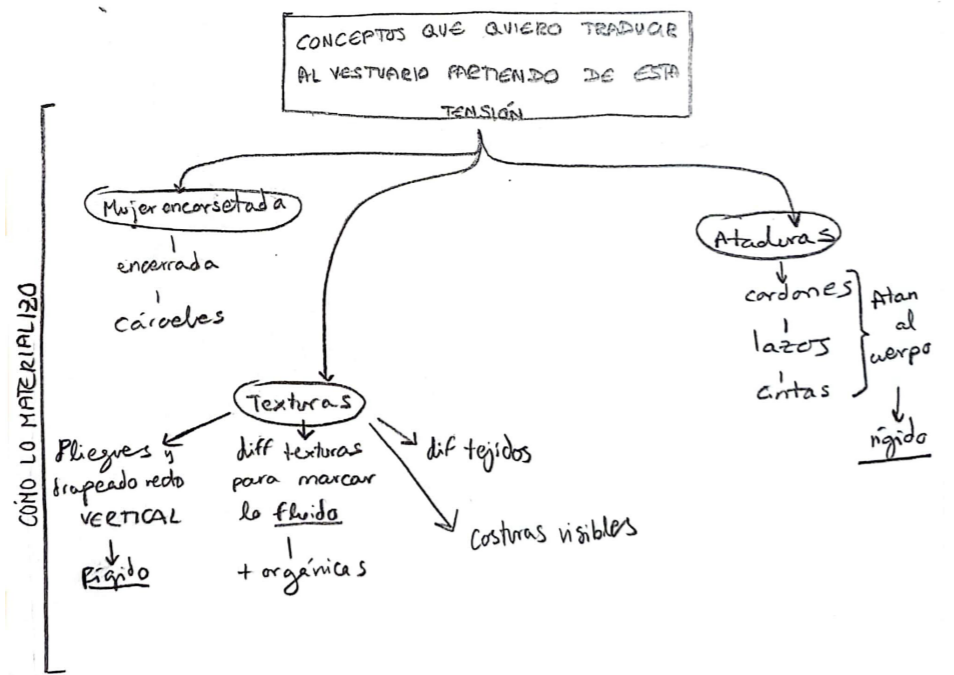 CONCEPTOS QUE QUIERO TRADUCIR
AL VESTUARIO PARTIENDO DE ESTA
TENSIÓN
CÓMO LO MATERIALIZO
Mujer encorsetada
encerrada
Cárceles
Texturas
Pliegues y
drapeado recto
VERTICAL
Rígido
diff texturas
para marcar
lo fluido
+ orgánicas
dif tejidos
Costuras visibles
Ataduras
cordones
lazos
cintas
Atan
al
cuerpo
rígido